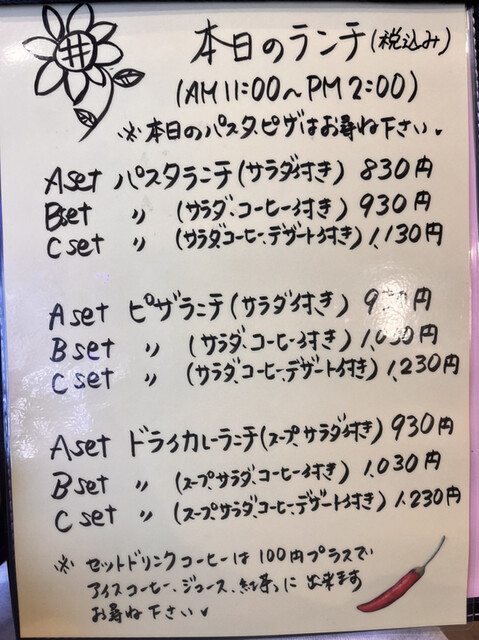 本日のランチ(税込み)
(AM11:00～PM2:00)
※本日のパスタ、ピザはお尋ね下さい。
Aset パスタランチ(サラダ付き) 830円
Bset 〃 (サラダ、コーヒー付き) 930円
Cset 〃 (サラダ、コーヒー、デザート付き) 1,130円
Aset ピザランチ(サラダ付き) 円
Bset 〃 (サラダ、コーヒー付き)
Cset 〃 (サラダ、コーヒー、デザート付き) 1,230円
Aset ドライカレーランチ(スープ、サラダ付き) 930円
Bset 〃 (スープ、サラダ、コーヒー付き) 1,030円
Cset 〃 (スープ、サラダ、コーヒー、デザート付き) 1,230円
※ セットドリンクコーヒーは100円プラスで
アイスコーヒー、ジュース、紅茶、に出来ます
お尋ね下さい。